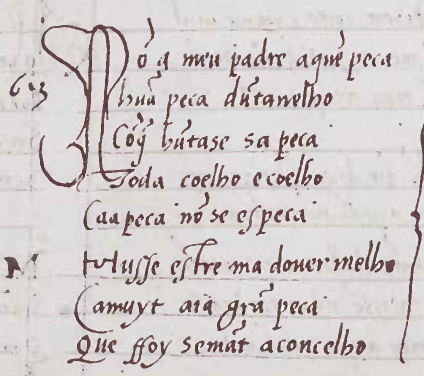 Nõ á meu padre a quẽ peca
623 hũa peca dũtanelho
Cõ q̃ hũtase sa peca
Toda coelho e coelho
Ca a peca nõ se especa
Musse estre ma douermelho
Ca muyt aia grã peca
Que ffoy semat̃ aconcelho